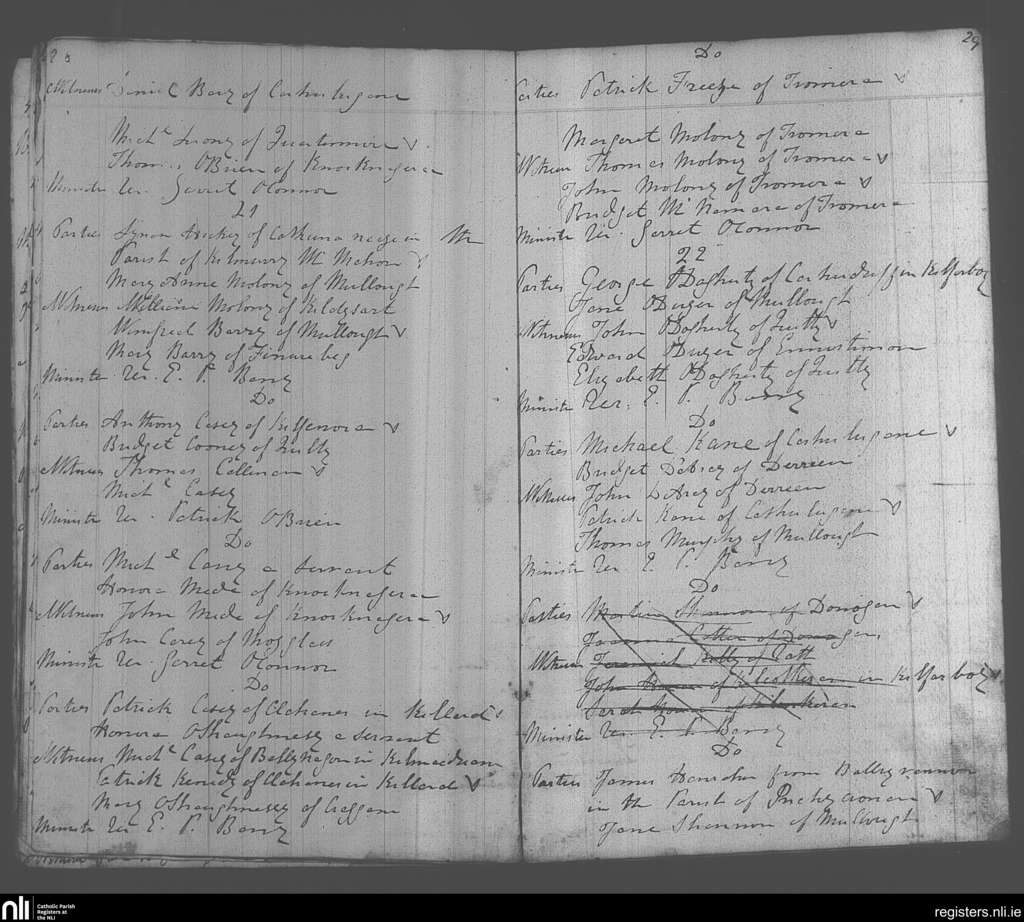 28
Witnesses Daniel Barry of Caherlugane
Michl Leony of Quartermire
Thomas OBrien of Knocknegera
Minister Rev. Gerret OConnor
21
Parties Hickey of in the
Parish of Kilmurry Mc Mahon
Mary Anne Molony of Mullough
Witnesses Molony of Kildysart
Winifred Barry of Mullough
Mary Barry of Finure beg
Minister Rev. E. P. Barry
Do
Parties Anthony Casey of Kilfenora
Bridget Cooney of Quilty
Witness Thomas Cullinan
Michl Casey
Minister Rev. Patrick OBrien
Do
Parties Michl Carey a servant
Honora Mede of Knocknegera
Witness John Mede of Knocknegera
John Carey of Mogglass
Minister Rev. Gerret OConnor
Do
Parties Patrick Casey of Clohanes in Killard
Honora OShaughnessy a servant
Witness Michl Casey of in
Patrick of Clohanes in Killard
Mary OShaughnessy of Creggane
Minister Rev E. P. Barry
29
Do
Parties Patrick Freeze of Tromera
Margaret Molony of Tromera
Witness Thomas Molony of Tromera
John Molony of Tromera
Bridget Mc Nemara of Tromera
Minister Rev. Gerret OConnor
22
Parties George ODogherty of Caherduff in Kilfarboy
Jane ODwyer of Mullough
Witness John ODogherty of Quilty
Edward ODwyer of Ennistimon
Elizabeth ODogherty of Quilty
Minister Rev. E. P. Barry
Do
Parties Michael Kane of Caherlugane
Bridget DArcy of Derreen
Witness John DArcy of Derreen
Patrick Kane of Caherlugane
Thomas Murphy of Mullough
Minister Rev E. P. Barry
Do
Parties Martin Shannon of Donogan
of Donogan
Witness Kelly of
John of in Kilfarboy
Sarah of
Minister Rev. E. P. Barry
Do
Parties James from
in the Parish of
Jane Shannon of Mullough
nli Catholic Parish
Registers at
the NLI
registers.nli.ie